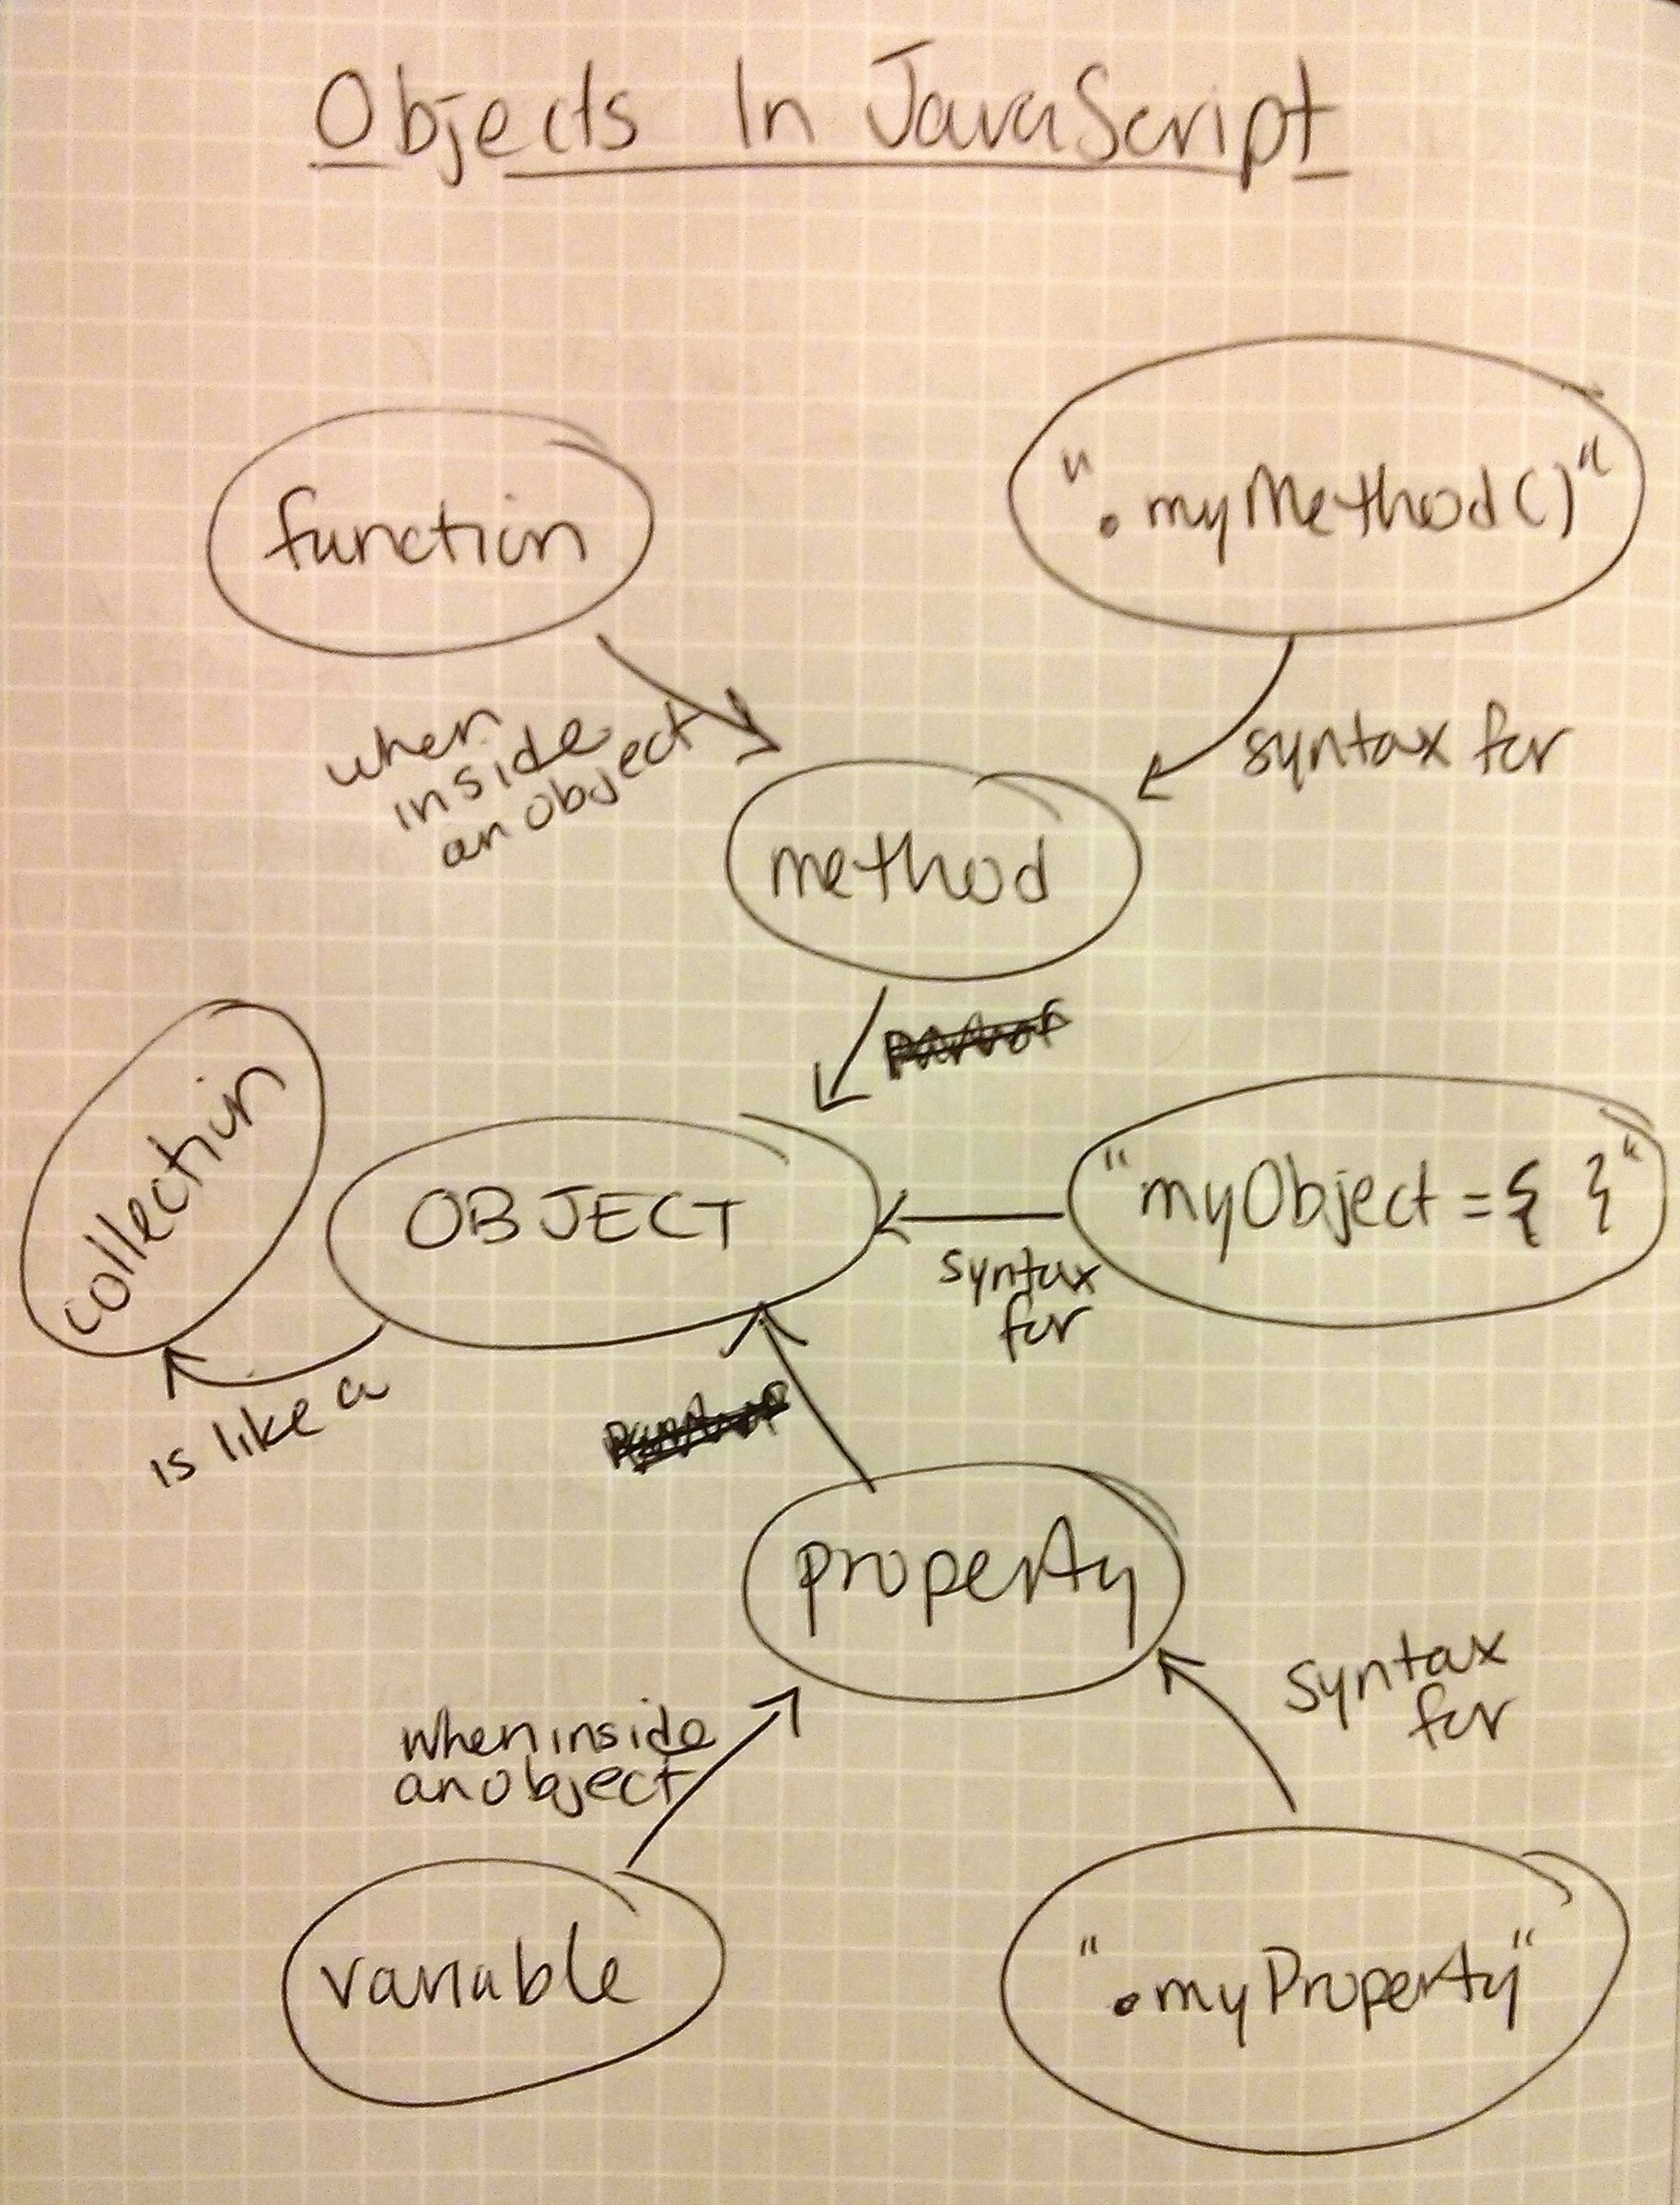 Objects In JavaScript
function
".myMethod()"
when
inside
an object
syntax for
method
collection
OBJECT
"myObject = { }"
syntax
for
is like a
property
syntax
for
when inside
an object
variable
".myProperty"